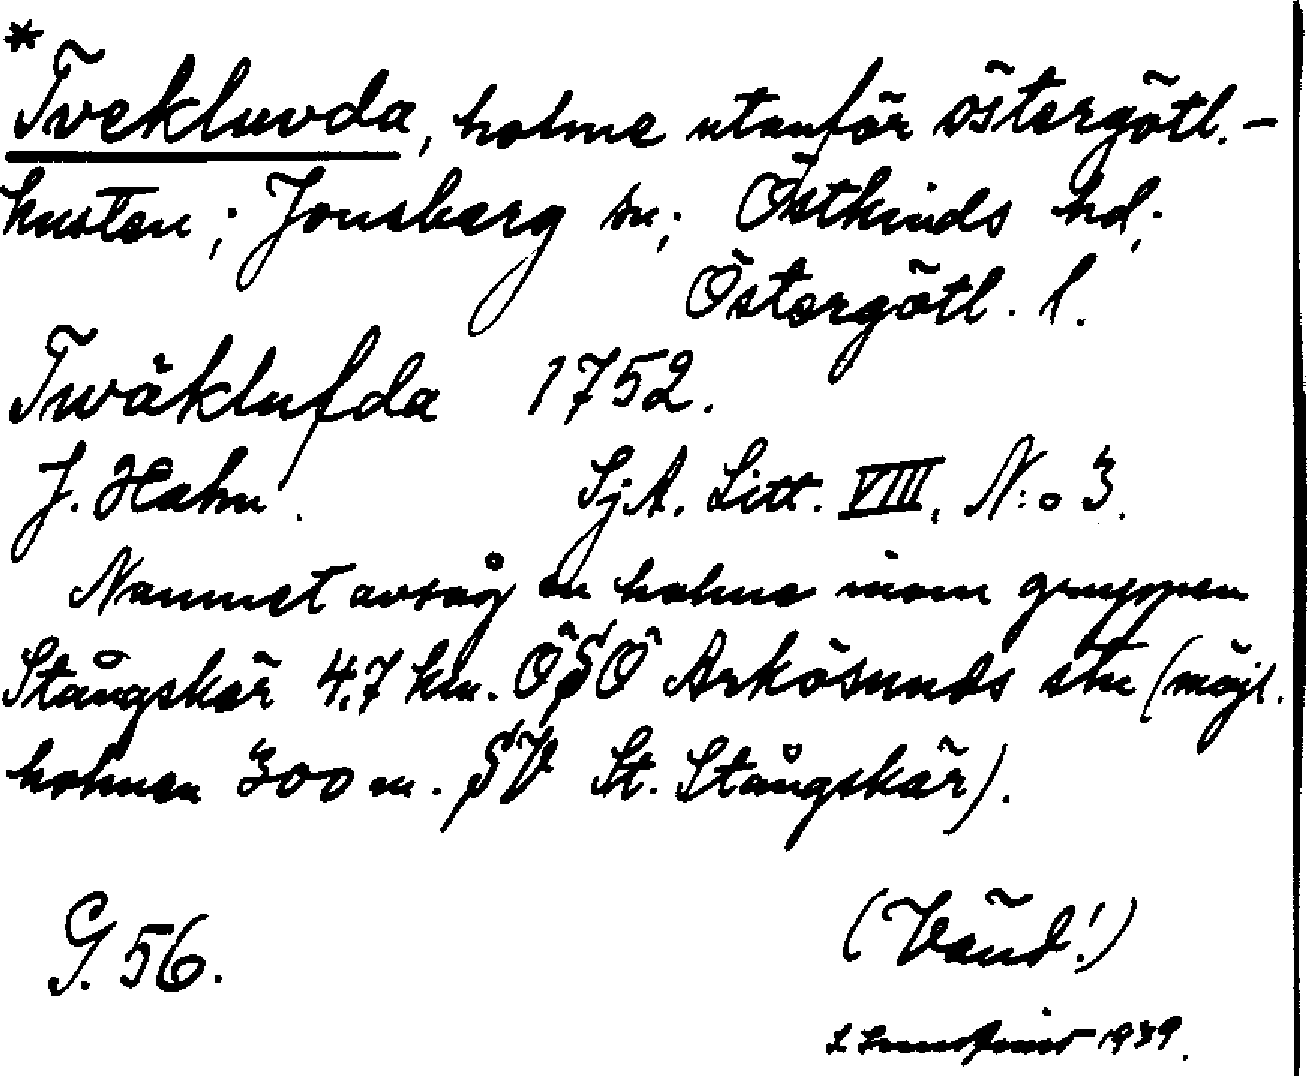 *
Tvekluvda, holme utanför östergötl.-
kusten; Jonsberg sn; Östkinds hd;
Östergötl. l.
Twäklufda 1752.
J. Hahn. Sj.A. Litt. VIII. N:o 3.
Namnet avsåg en holme inom gruppen
Stångskär 4.7 km. ÖSÖ Arkösunds stn (möjl.
holmen 300 m. SV St. Stångskär).
G. 56. (Vänd!)
1939.